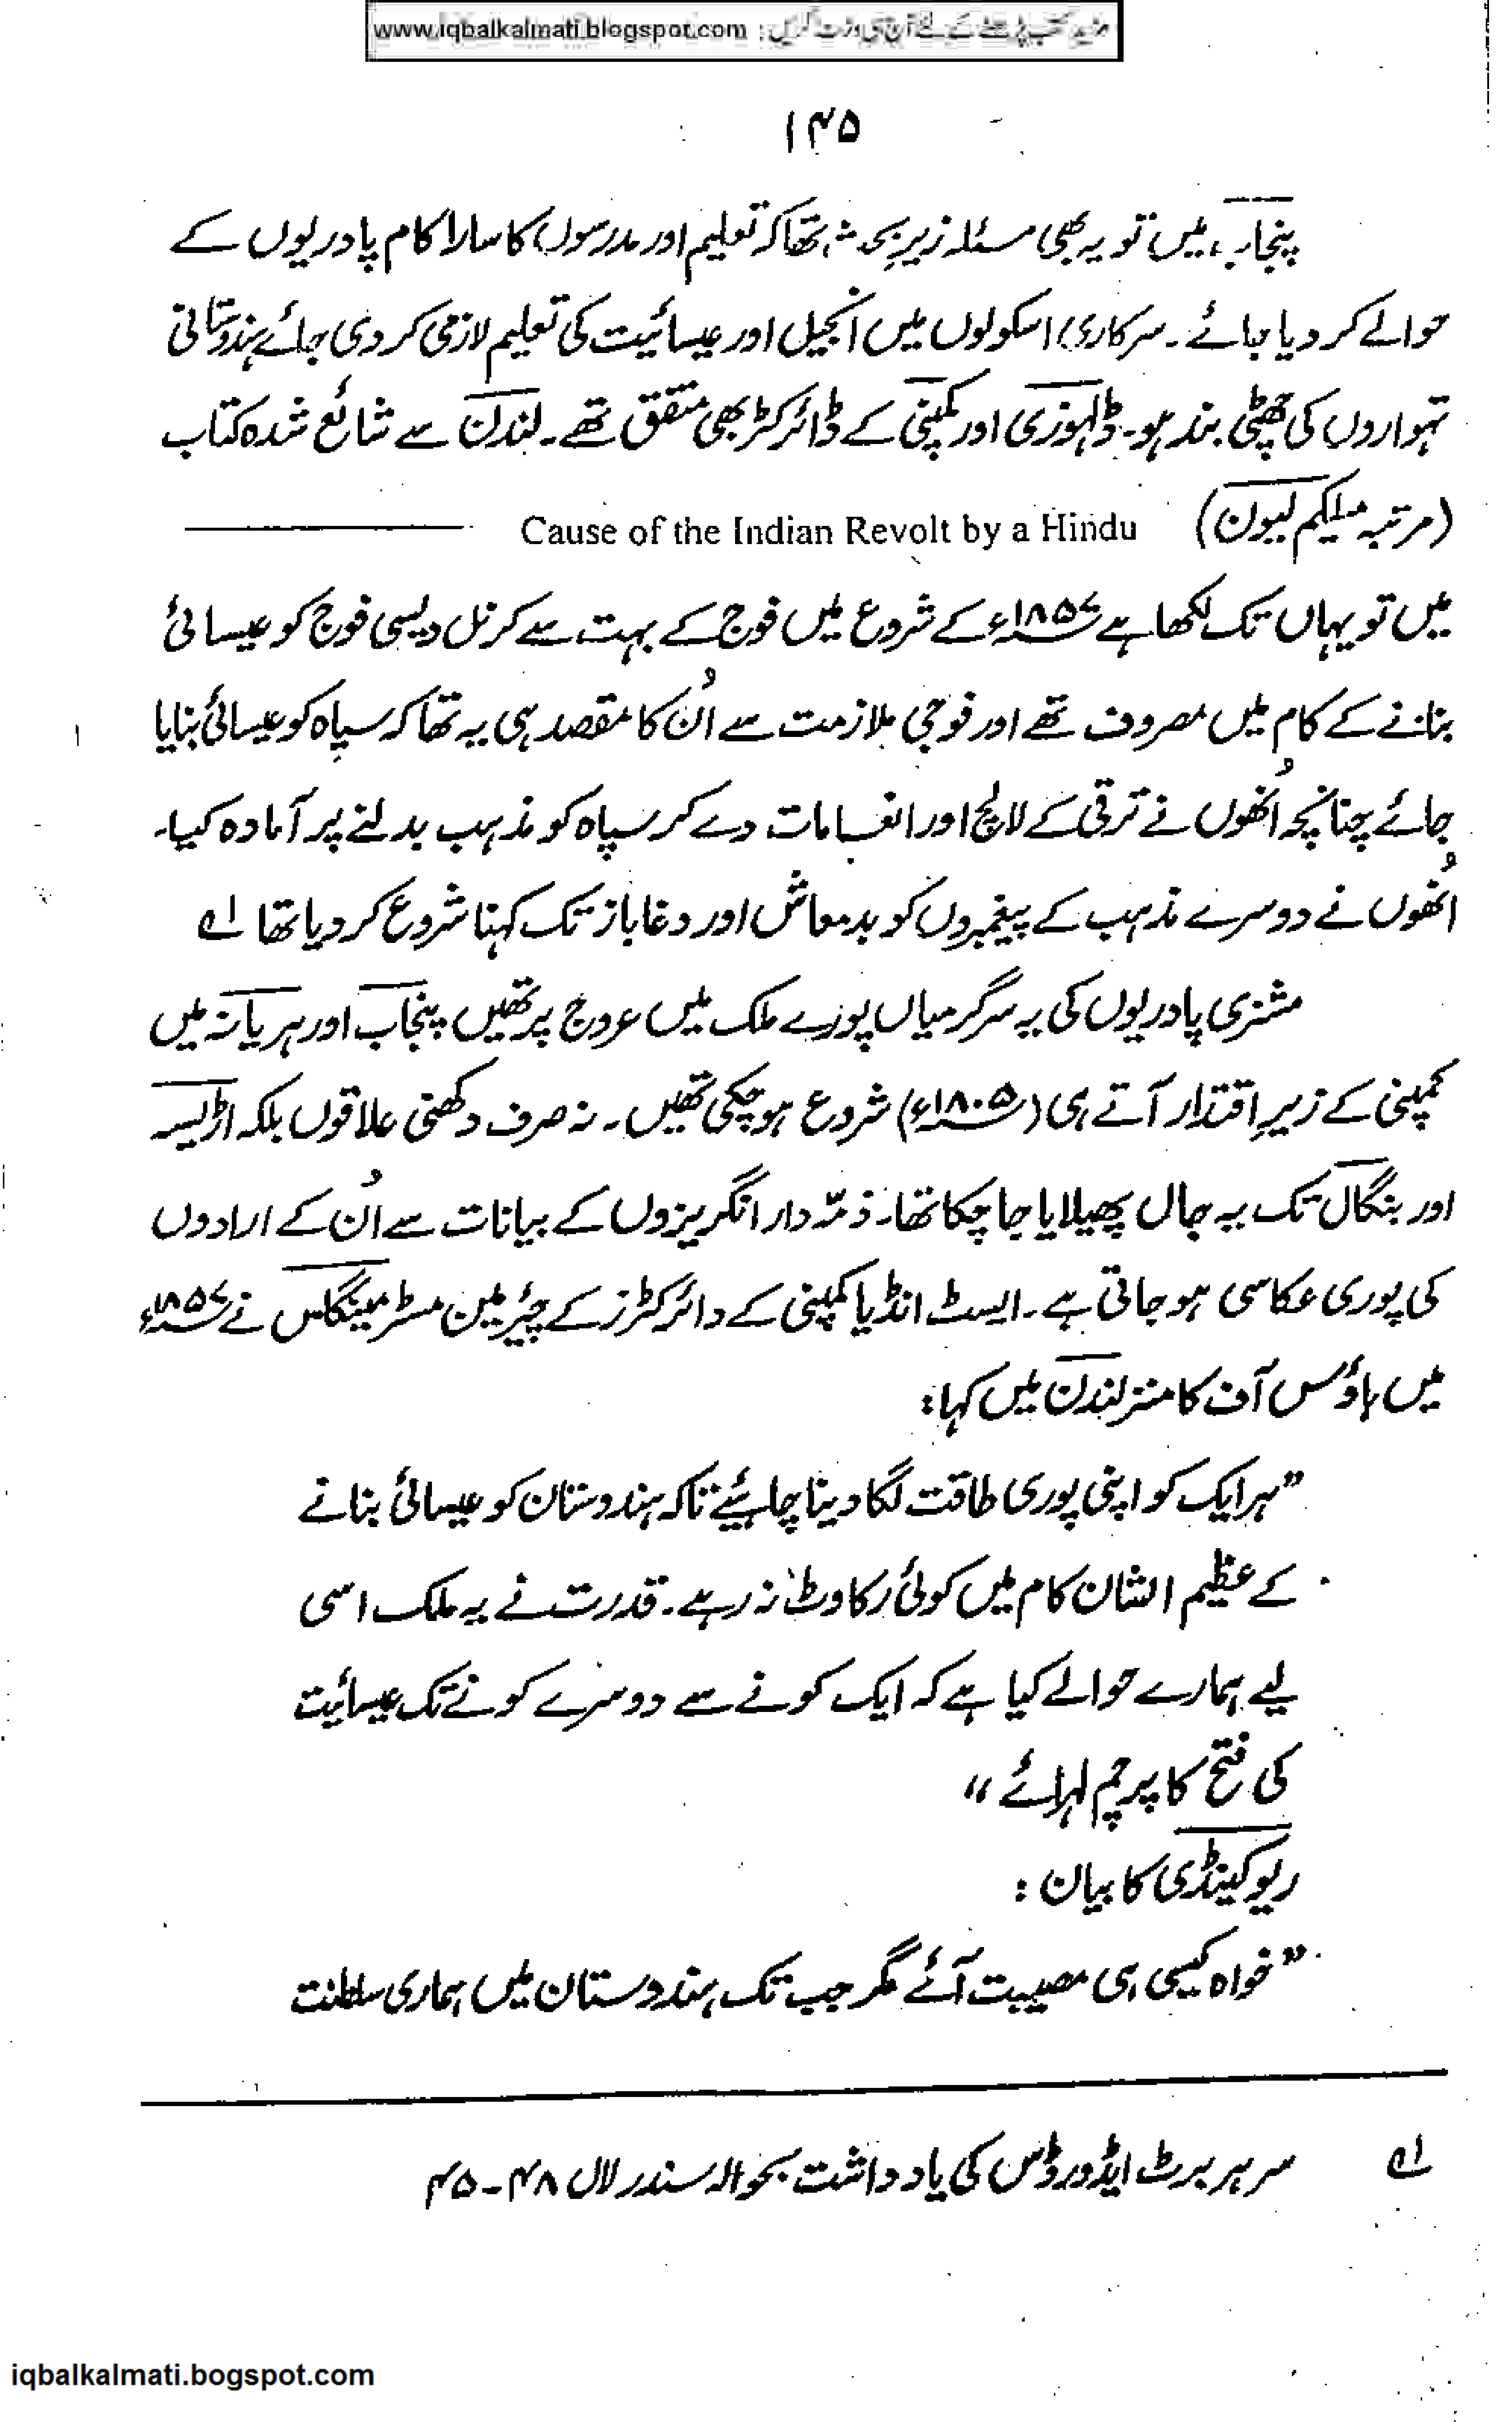 مزید کتب پڑھنے کے لئے آج ہی وزٹ کریں : www.iqbalkalmati.blogspot.com
۱۴۵
پنجاب میں تو یہ بھی مسئلہ زیرِ بحث تھا کہ تعلیم اور مدرسوں کا سارا کام پادریوں کے
حوالے کر دیا جائے۔ سرکاری اسکولوں میں انجیل اور عیسائیت کی تعلیم لازمی کر دی جائے ہندوستانی
تہواروں کی چھٹی بند ہو۔ ڈلہوزی اور کمپنی کے ڈائرکٹر بھی متفق تھے۔ لندن سے شائع شدہ کتاب
(مرتبہ میلکم لیون) Cause of the Indian Revolt by a Hindu
میں تو یہاں تک لکھا ہے ۱۸۵۷ء کے شروع میں فوج کے بہت سے کرنل دیسی فوج کو عیسائی
بنانے کے کام میں مصروف تھے اور فوجی ملازمت سے اُن کا مقصد ہی یہ تھا کہ سپاہ کو عیسائی بنایا
جائے چنانچہ اُنھوں نے ترقی کے لالچ اور انعامات دے کر سپاہ کو مذہب بدلنے پر آمادہ کیا۔
اُنھوں نے دوسرے مذہب کے پیغمبروں کو بدمعاش اور دغاباز تک کہنا شروع کر دیا تھا لہ
مشنری پادریوں کی یہ سرگرمیاں پورے ملک میں عروج پر تھیں پنجاب اور ہریانہ میں
کمپنی کے زیرِ اقتدار آتے ہی (۱۸۰۵ء) شروع ہو چکی تھیں۔ نہ صرف دکھنی علاقوں بلکہ اڑلیسہ
اور بنگال تک یہ جال پھیلایا جا چکا تھا۔ ذمّہ دار انگریزوں کے بیانات سے اُن کے ارادوں
کی پوری عکاسی ہو جاتی ہے۔ ایسٹ انڈیا کمپنی کے دائرکٹرز کے چئیرمین مسٹر مینگلس نے ۱۸۵۷ء
میں ہاؤس آف کامنز لندن میں کہا :
”ہر ایک کو اپنی پوری طاقت لگا دینا چاہئیے تاکہ ہندوستان کو عیسائی بنانے
کے عظیم الشان کام میں کوئی رکاوٹ نہ رہے۔ قدرت نے یہ ملک اسی
لیے ہمارے حوالے کیا ہے کہ ایک کونے سے دوسرے کونے تک عیسائیت
کی فتح کا پرچم لہرائے“
ریو کینڈی کا بیان :
”خواہ کیسی ہی مصیبت آئے مگر جب تک ہندوستان میں ہماری سلطنت
لہ سر ہربرٹ ایڈورڈس کی یادداشت بحوالہ سندر لال ۴۸-۴۵
iqbalkalmati.bogspot.com